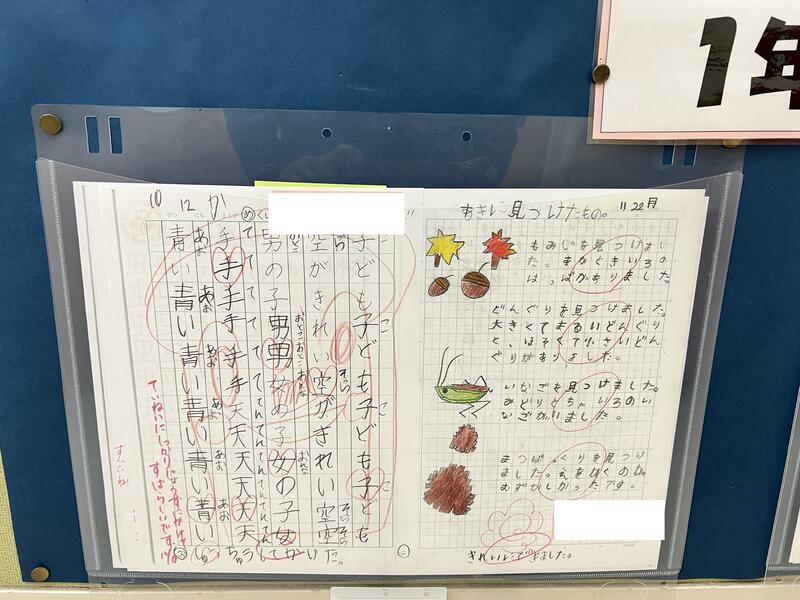 1年
あきに見つけたもの。
11 22月
もみじを見つけまし
た。あかくきいろの
はっぱがありました。
どんぐりを見つけました。
大きくてまるいどんぐり
と、ほそくて小さいどん
ぐりがありました。
いなごを見つけました。
みどりとちゃいろのい
なごがいました。
まつぼっくりを見つけ
ました。えをかくのは、
むずかしかったです。
きれいにできました。
10 12 か
子ども子ども子ども子ども
空がきれい空がきれい空空
男の子男男女の子女の子女
青い青い青い青い青い青い
しゅうちゅうしてかいた。
すばらしいです。